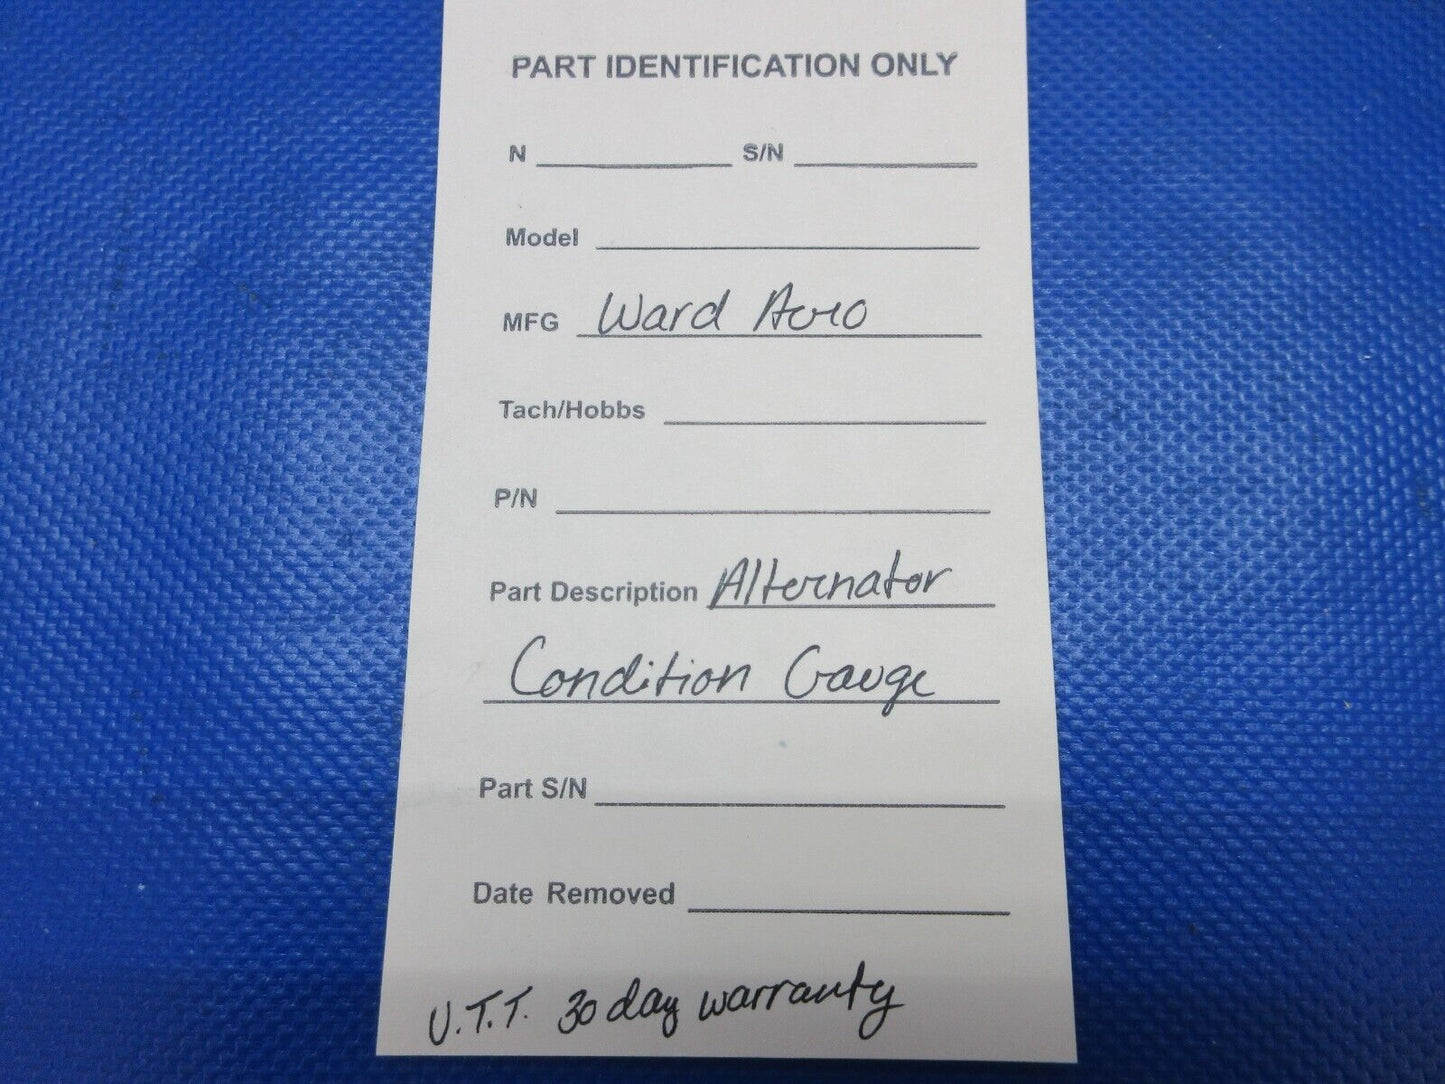 PART IDENTIFICATION ONLY
N S/N
Model
MFG Ward Aero
Tach/Hobbs
P/N
Part Description Alternator
Condition Gauge
Part S/N
Date Removed
U.T.T. 30 day warranty